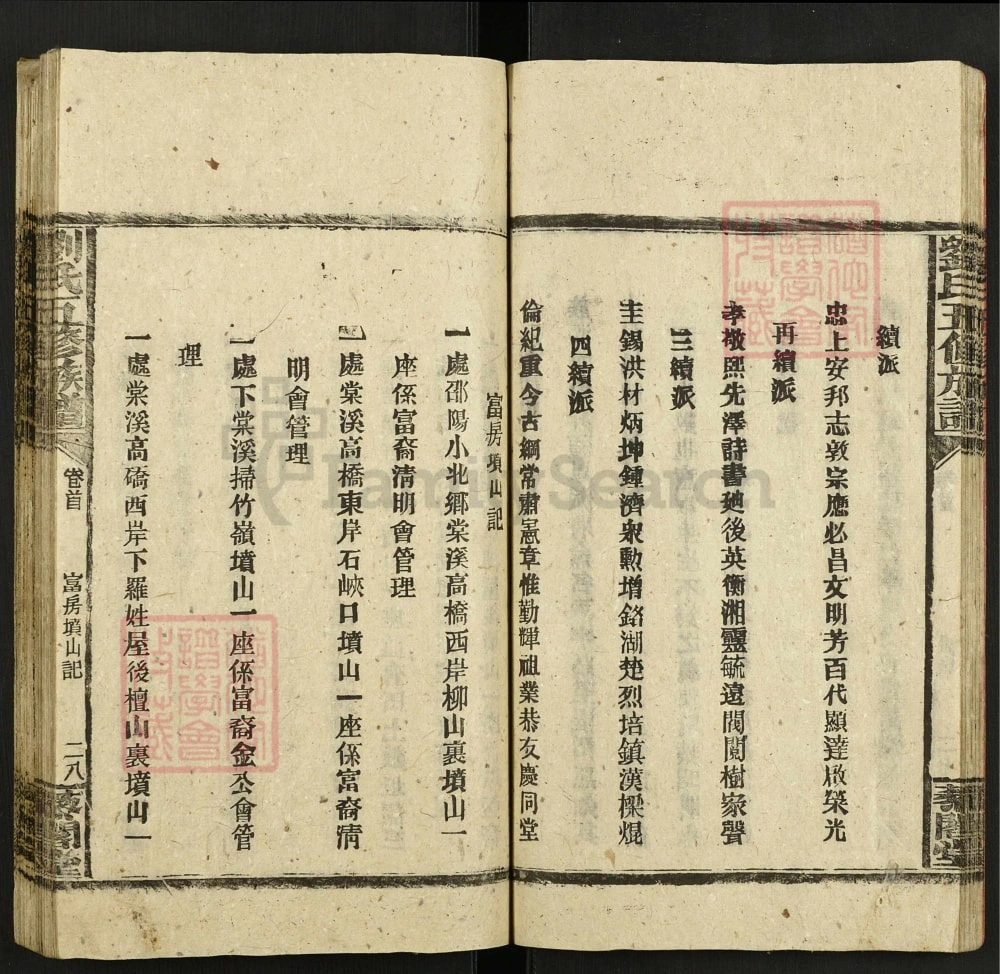 劉氏五修族譜
續派
忠上安邦志敦宗應必昌文明芳百代顯達啟榮光
再續派
孝敬熙先澤詩書廸後英衡湘靈毓遠閥閱樹家聲
三續派
圭錫洪材炳坤鍾濟衆勲增銘湖楚烈培鎮漢樑焜
四續派
倫紀重今古綱常肅憲章惟勤輝祖業恭友慶同堂
富房項山記
一處邵陽小北鄉棠溪高橋西岸柳山裏墳山一
座係富裔清明會管理
一處棠溪高橋東岸石峽口墳山一座係富裔清
明會管理
一處下棠溪掃竹嶺墳山一座係富裔金公會管
理
一處棠溪高磽西岸下羅姓屋後檀山裏墳山一
劉氏五修族譜
卷首
富房墳山記
二八
藜閣堂
FamilySearch